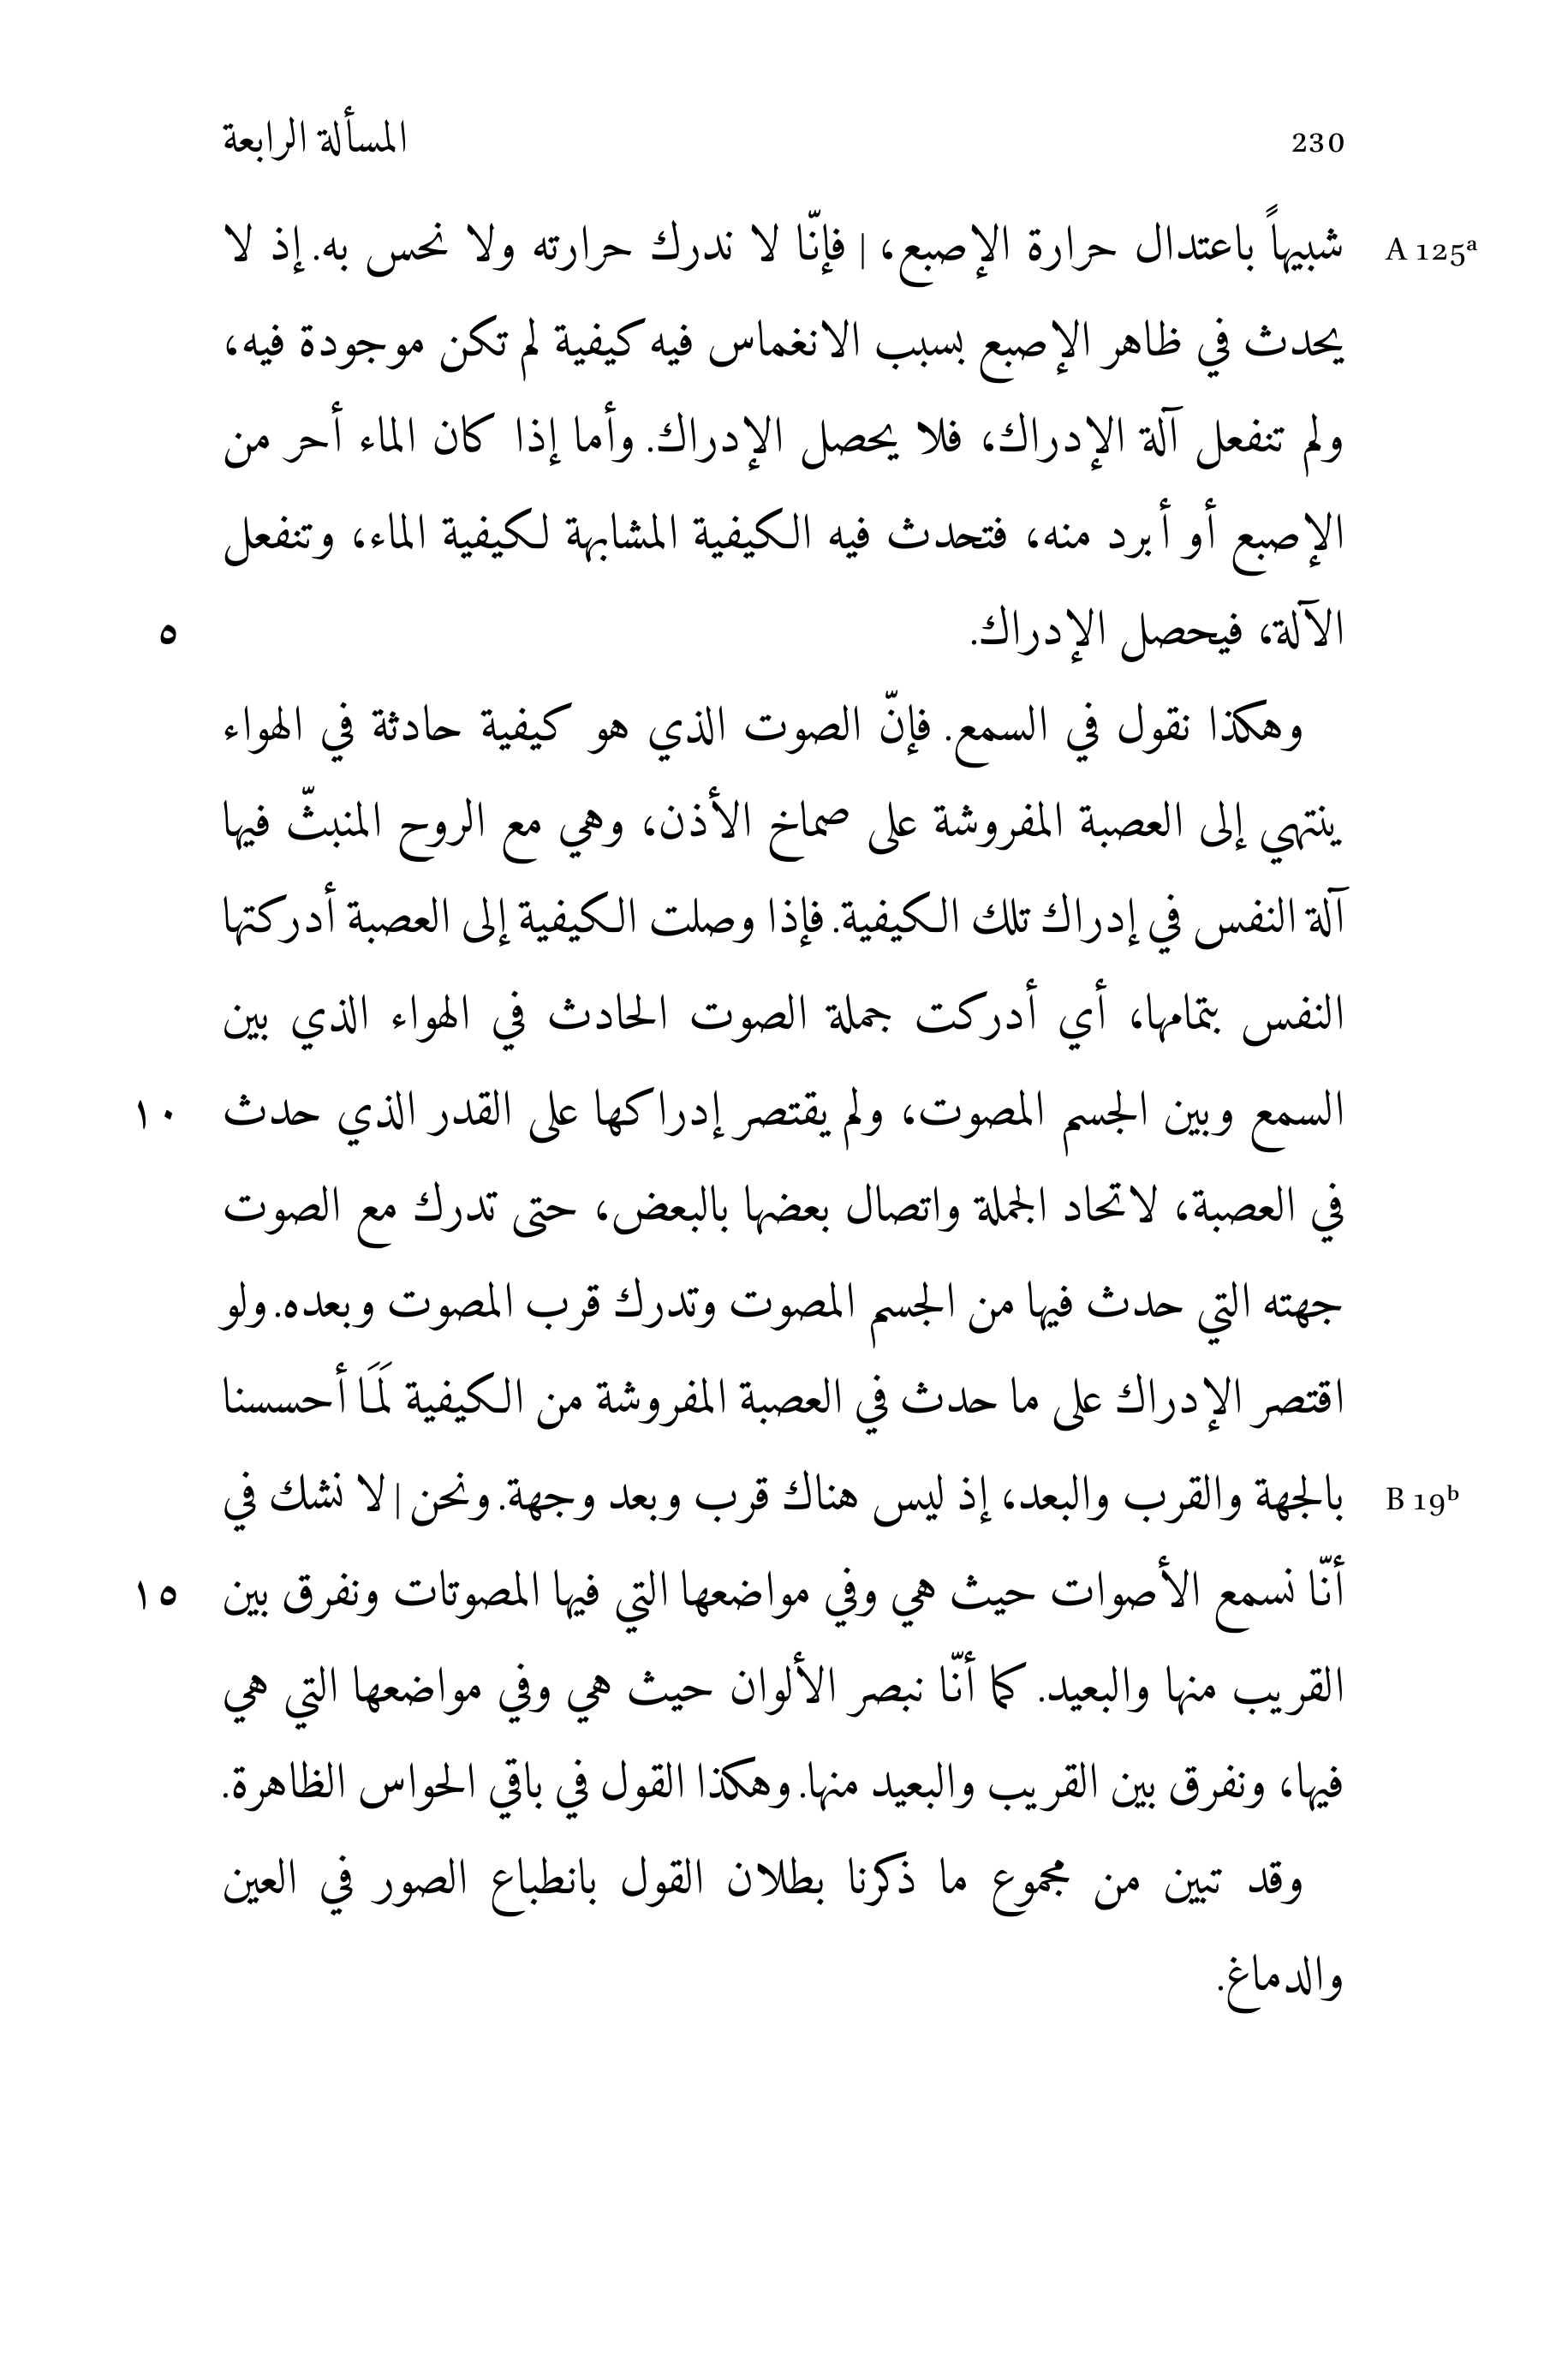 230 المسألة الرابعة
A 125ª شبيهاً باعتدال حرارة الإصبع، | فإنّا لا ندرك حرارته ولا نحس به. إذ لا
يحدث في ظاهر الإصبع بسبب الانغماس فيه كيفية لم تكن موجودة فيه،
ولم تنفعل آلة الإدراك، فلا يحصل الإدراك. وأما إذا كان الماء أحر من
الإصبع أو أبرد منه، فتحدث فيه الكيفية المشابهة لكيفية الماء، وتنفعل
الآلة، فيحصل الإدراك. ٥
وهكذا نقول في السمع. فإنّ الصوت الذي هو كيفية حادثة في الهواء
ينتهي إلى العصبة المفروشة على صماخ الأذن، وهي مع الروح المنبثّ فيها
آلة النفس في إدراك تلك الكيفية. فإذا وصلت الكيفية إلى العصبة أدركتها
النفس بتمامها، أي أدركت جملة الصوت الحادث في الهواء الذي بين
السمع وبين الجسم المصوت، ولم يقتصر إدراكها على القدر الذي حدث ١٠
في العصبة، لاتحاد الجملة واتصال بعضها بالبعض، حتى تدرك مع الصوت
جهته التي حدث فيها من الجسم المصوت وتدرك قرب المصوت وبعده. ولو
اقتصر الإدراك على ما حدث في العصبة المفروشة من الكيفية لَمَا أحسسنا
B 19ᵇ بالجهة والقرب والبعد، إذ ليس هناك قرب وبعد وجهة. ونحن | لا نشك في
أنّا نسمع الأصوات حيث هي وفي مواضعها التي فيها المصوتات ونفرق بين ١٥
القريب منها والبعيد. كما أنّا نبصر الألوان حيث هي وفي مواضعها التي هي
فيها، ونفرق بين القريب والبعيد منها. وهكذا القول في باقي الحواس الظاهرة.
وقد تبين من مجموع ما ذكرنا بطلان القول بانطباع الصور في العين
والدماغ.